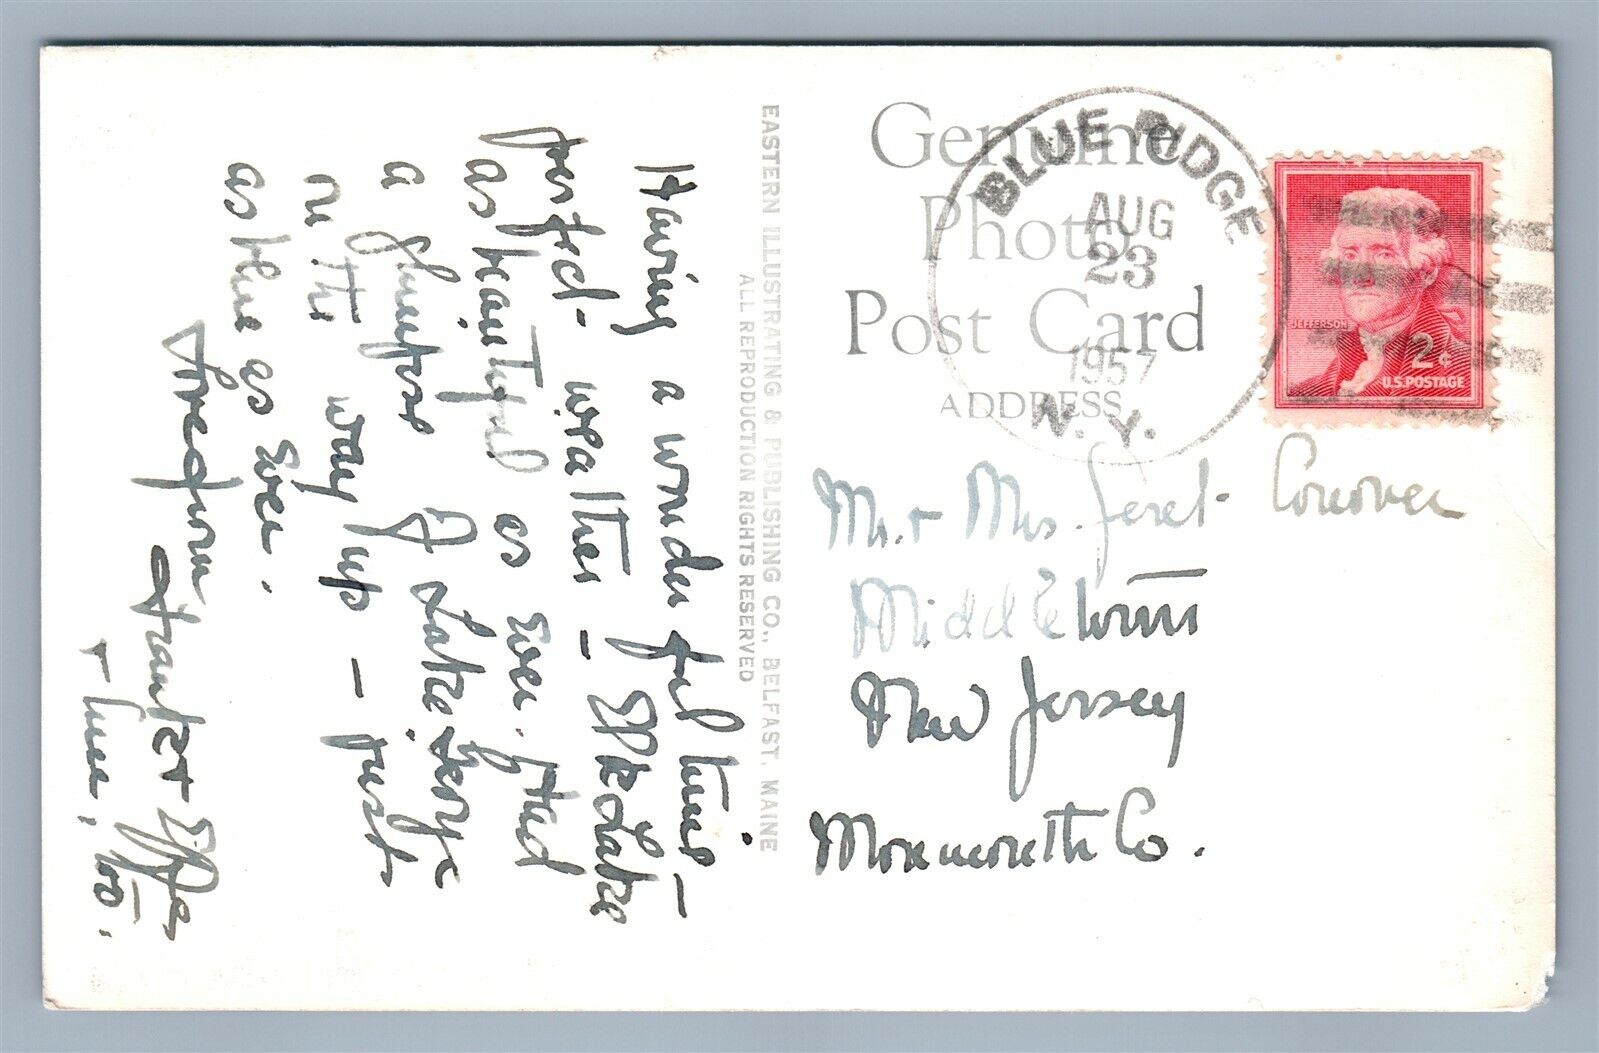 Having a wonderful time –
perfect - weather – Elk Lake
as beautiful as ever. Had
a glimpse of Lake George
on the way up – just
as blue as ever.
Love from
Frank & Effie
+ June, too.
EASTERN ILLUSTRATING & PUBLISHING CO., BELFAST, MAINE
ALL REPRODUCTION RIGHTS RESERVED
Genuine
Photo
Post Card
ADDRESS
BLUE RIDGE
AUG
23
1957
N. Y.
JEFFERSON
2¢
U.S. POSTAGE
Mr. + Mrs. Conover
Middletown
New Jersey
Monmouth Co.